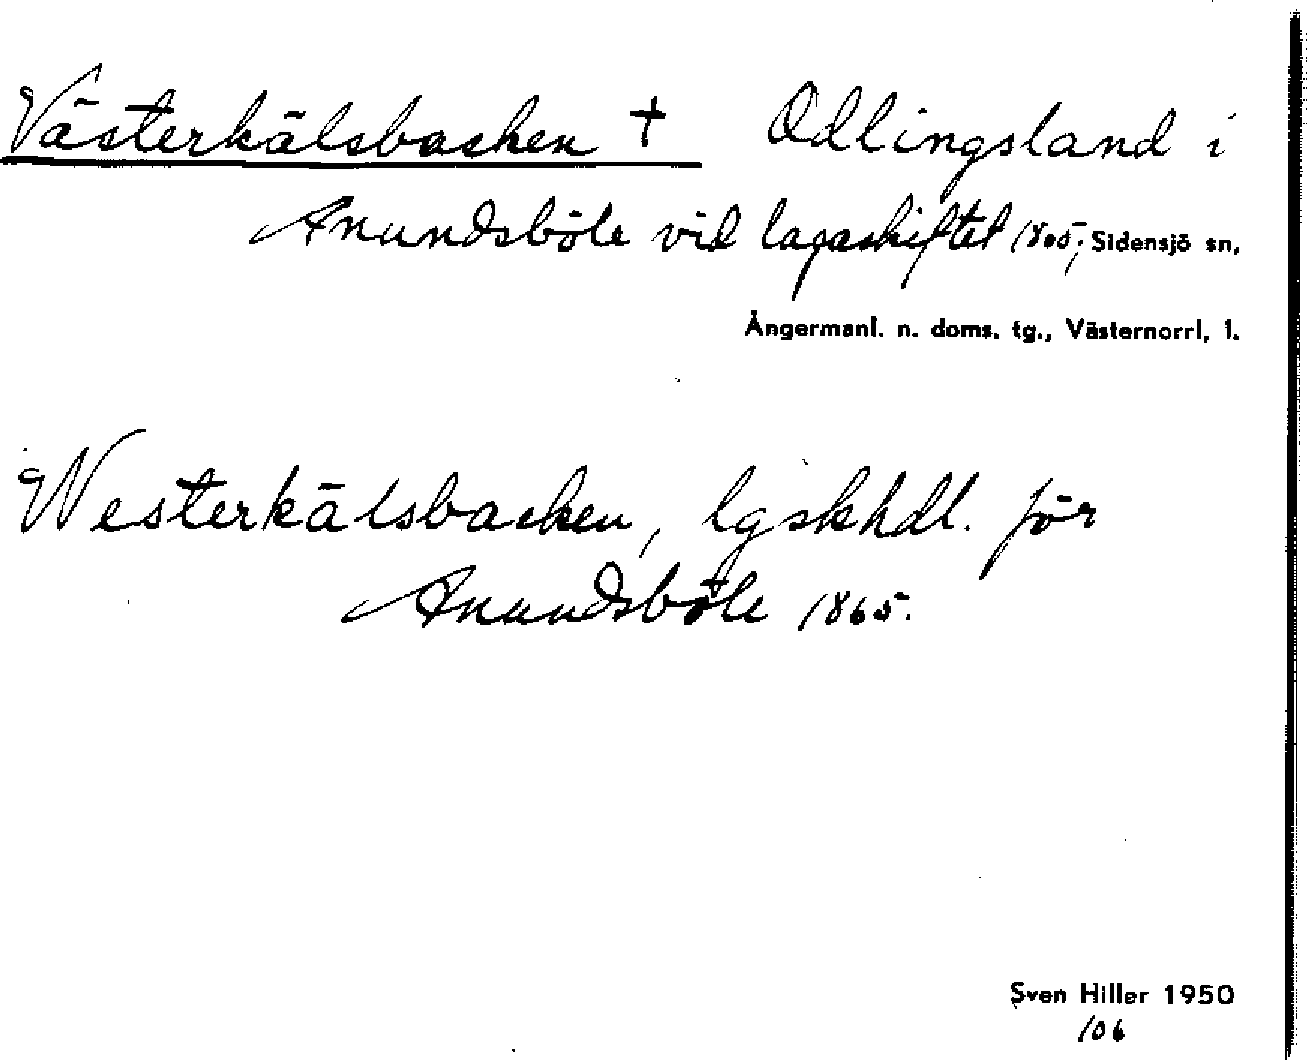 Västerkälsbacken † Odlingsland i
Anundsböle vid lagaskiftet 1865, Sidensjö sn,
Ångermanl. n. doms. tg., Västernorrl. l.
Westerkälsbacken, lgskhdl. för
Anundsböle 1865.
Sven Hiller 1950
106